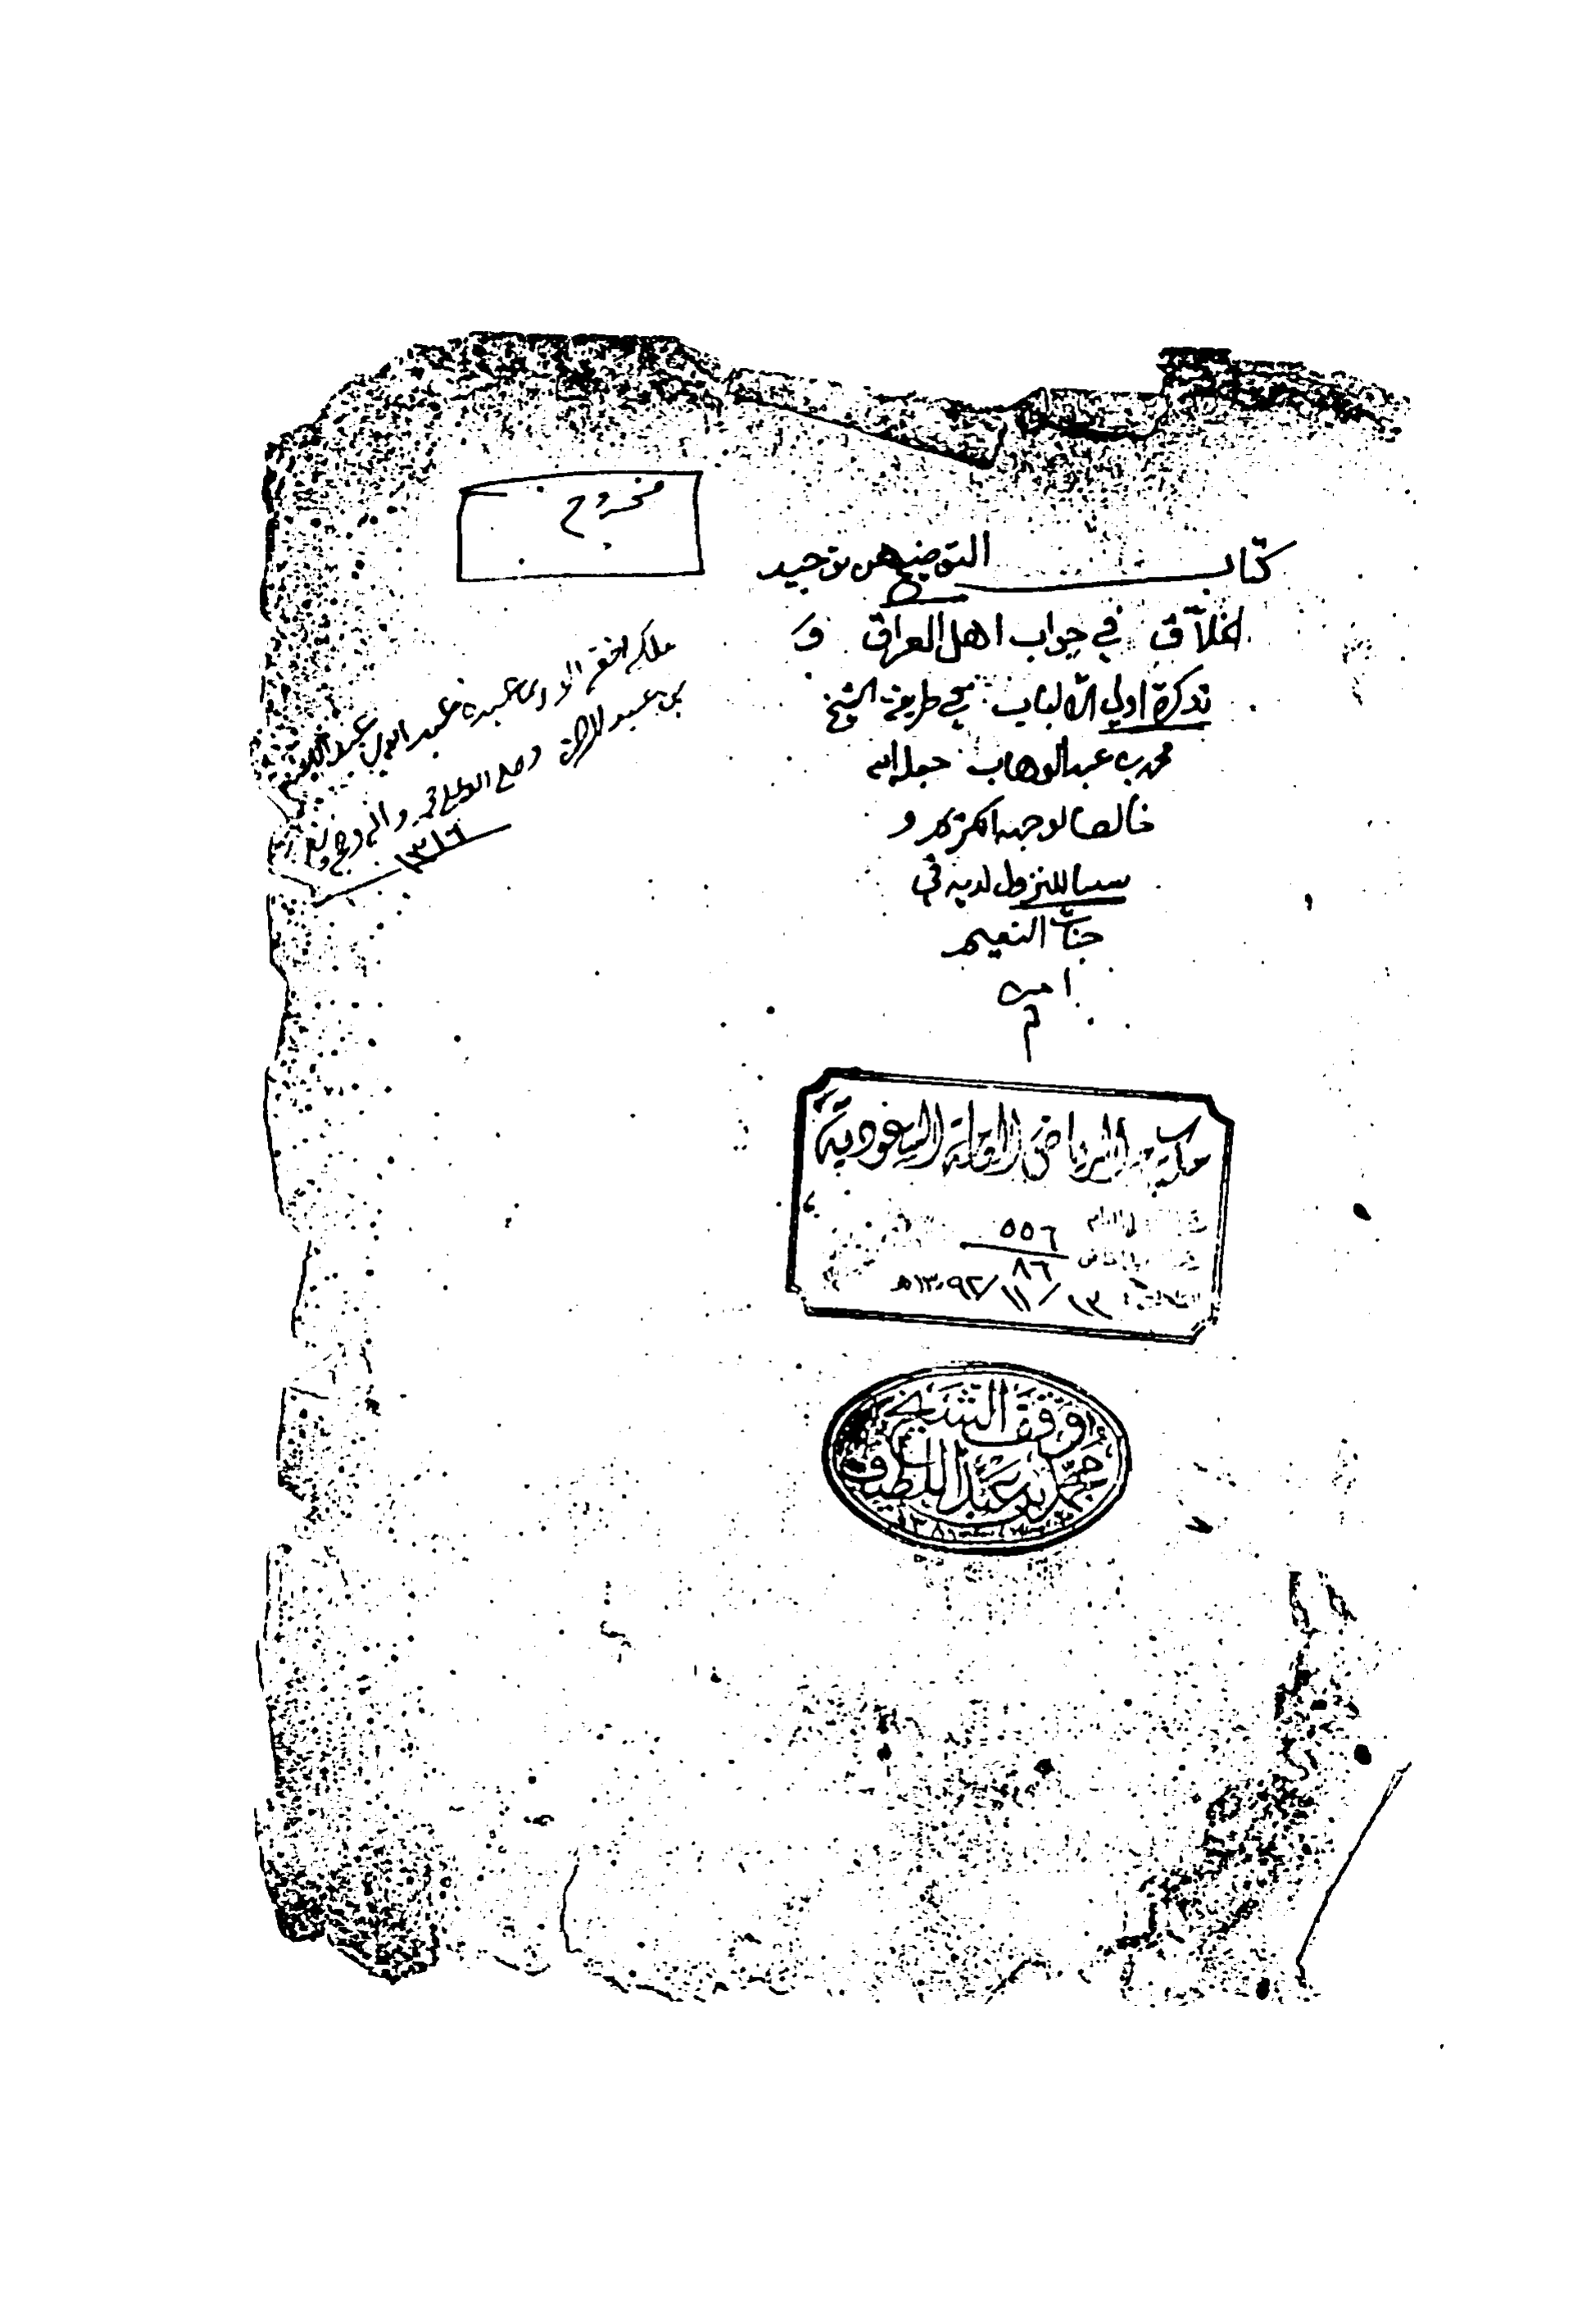 كتاب التوضيح عن توحيد
الخلاق في جواب اهل العراق و
تذكرة اولي الالباب في طريقة الشيخ
محمد بن عبد الوهاب جعله الله
خالصا لوجهه الكريم و
سببا للنزول لديه في
جنات النعيم
امين
م
ملكه افقر الورى عبده عبد الله بن عبد اللطيف
بن عبد الرحمن وصلى الله على محمد
١٣١٦
مكتبة الرياض العامة السعودية
٥٥٦
٨٦
١٣/١١/١٣٩٢هـ
وقف الشيخ
محمد بن عبد اللطيف
١٣٨١